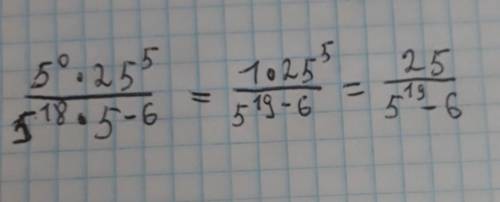 5⁰ · 25⁵ / 5¹⁸ · 5 - 6 = 1 · 25⁵ / 5¹⁹⁻⁶ = 25 / 5¹⁹ - 6